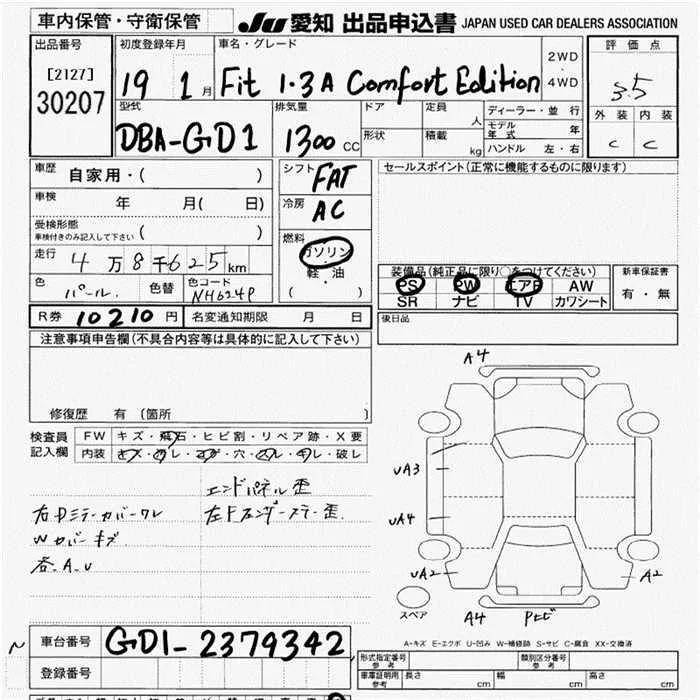 車内保管・守衛保管 JU 愛知 出品申込書 JAPAN USED CAR DEALERS ASSOCIATION
出品番号 初度登録年月 車名・グレード 2WD 評価点
[2127] ・
30207 19 1月 Fit 1.3A Comfort Edition 4WD 3.5
型式 排気量 ドア 定員 ディーラー・並行 外装 内装
人 モデル年式 年
DBA-GD1 1300 CC 形状 積載 kg ハンドル 左・右 C C
車歴 自家用・( ) シフト FAT セールスポイント(正常に機能するものに限ります)
車検 年 月( 日) 冷房 AC
受検形態
車検付きのみ記入して下さい ( ) 燃料
走行 4万8千625km ガソリン 装備品(純正品に限り○をつけてください) 新車保証書
軽・油 PS PW エアB AW 有・無
色 パール 色替 色コード NH624P ( ) SR ナビ TV カワシート
R券 10210円 名変通知期限 月 日 後日品
注意事項申告欄(不具合内容等は具体的に記入して下さい)
A4
修復歴 有(箇所
検査員 FW キズ・飛石・ヒビ割・リペア跡・X要
記入欄 内装 キズ・汚レ・コゲ・穴・スレ・キレ・破レ
UA3
エンドパネル歪
右Dミラーカバーワレ 左Fフェンダーステー歪
UA4
Wカバーキズ
各A.U UA2 A2
スペア A4 Pヒビ
A-キズ E-エクボ U-凹み W-補修跡 S-サビ C-腐食 XX-交換済
車台番号 GD1-2379342
形式指定番号 参考 類別区分番号 参考
登録番号 車庫証明用 参考 長さ cm 幅 cm 高さ cm